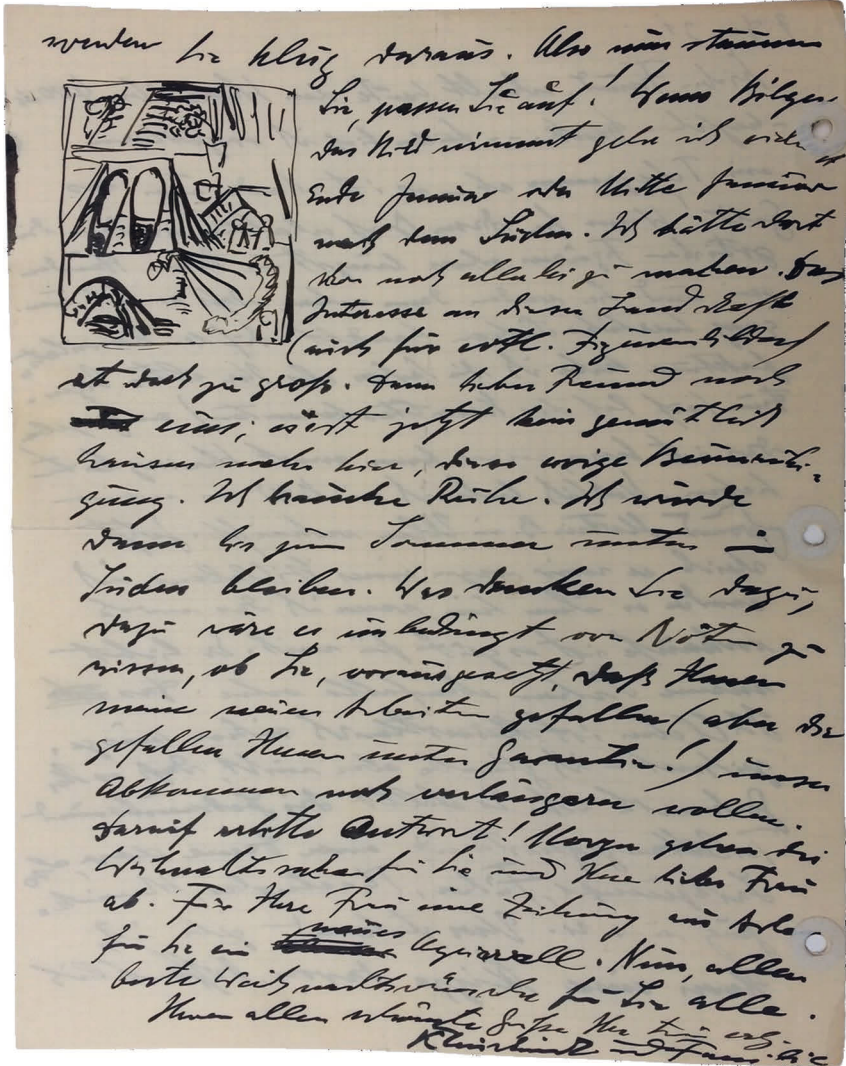 werden Sie klug daraus. Also nun staunen
Sie, passen Sie auf! Wenn Bilger
das Bild nimmt gehe ich
Ende Januar oder Mitte Januar
nach dem Süden. Ich hätte dort
noch allerlei zu machen. Das
Interesse an dieser Landschaft
(auch für evtl. Figurenbilder)
ist doch zu groß. Dann lieber Freund noch
eins; es ist jetzt kein gemütlich
hausen mehr hier, diese ewige Beunruhi-
gung. Ich brauche Ruhe. Ich würde
dann bis zum Sommer unten im
Süden bleiben. Was denken Sie dazu,
dazu wäre es unbedingt von Nöten zu
wissen, ob Sie, vorausgesetzt, daß Ihnen
meine neuen Arbeiten gefallen (aber die
gefallen Ihnen unter Garantie!) unser
Abkommen noch verlängern wollen.
Darauf erbitte Antwort! Morgen gehen die
Weihnachtssachen für Sie und Ihre liebe Frau
ab. Für Ihre Frau eine Zeichnung aus Arles
für Sie ein neues Aquarell. Nun, allen
beste Weihnachtswünsche für Sie alle.
Ihnen allen schönste Grüße Ihr
Kleinschmidt und Familie